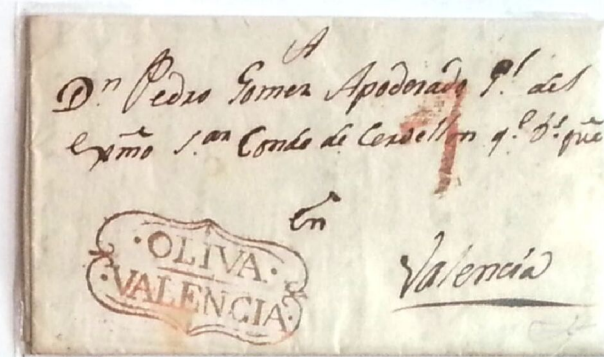 A
Dn Pedro Gomez Apoderado Gl del
Exmo Sor Conde de Cervellon q.e D.s gue
En
Valencia
·OLIVA·
·VALENCIA·